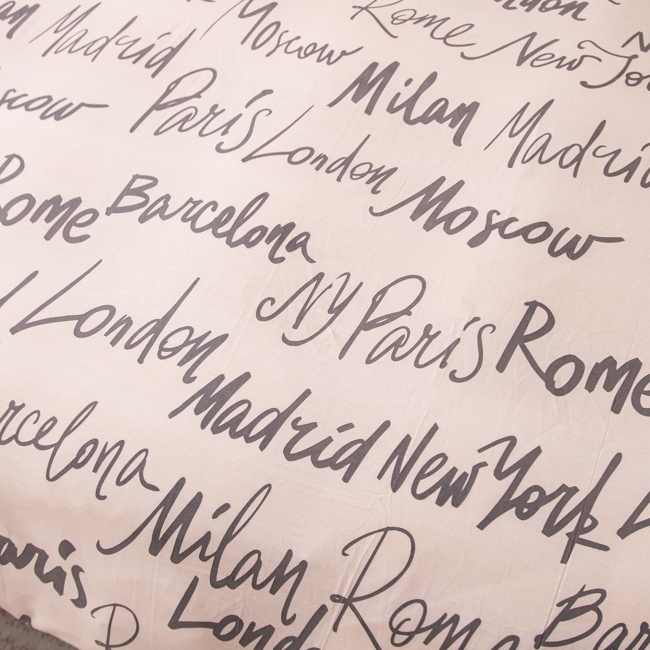 London
Madrid Moscow Rome New York
Moscow Paris London Milan Madrid
Rome Barcelona Moscow
London NY Paris Rome
Barcelona Madrid New York
Paris Milan Rome
London Barcelona